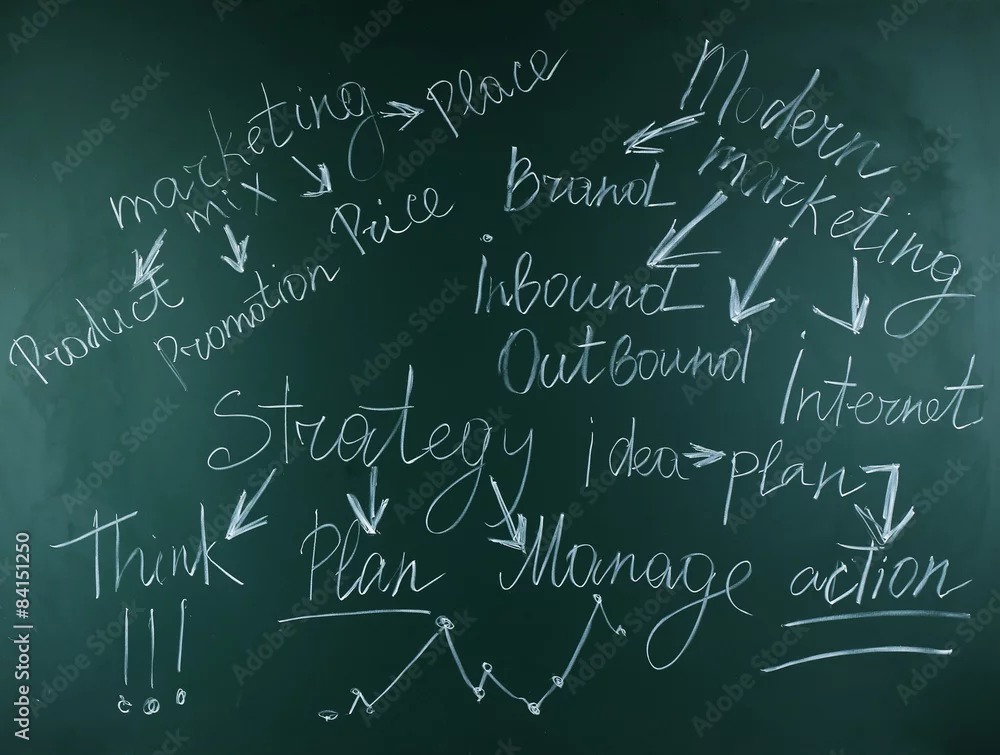 marketing place
mix
Price
Product
promotion
Modern
marketing
Brand
Inbound
Outbound
Internet
Strategy
idea plan
action
Think Plan Manage
!!!
Adobe Stock | #84151250